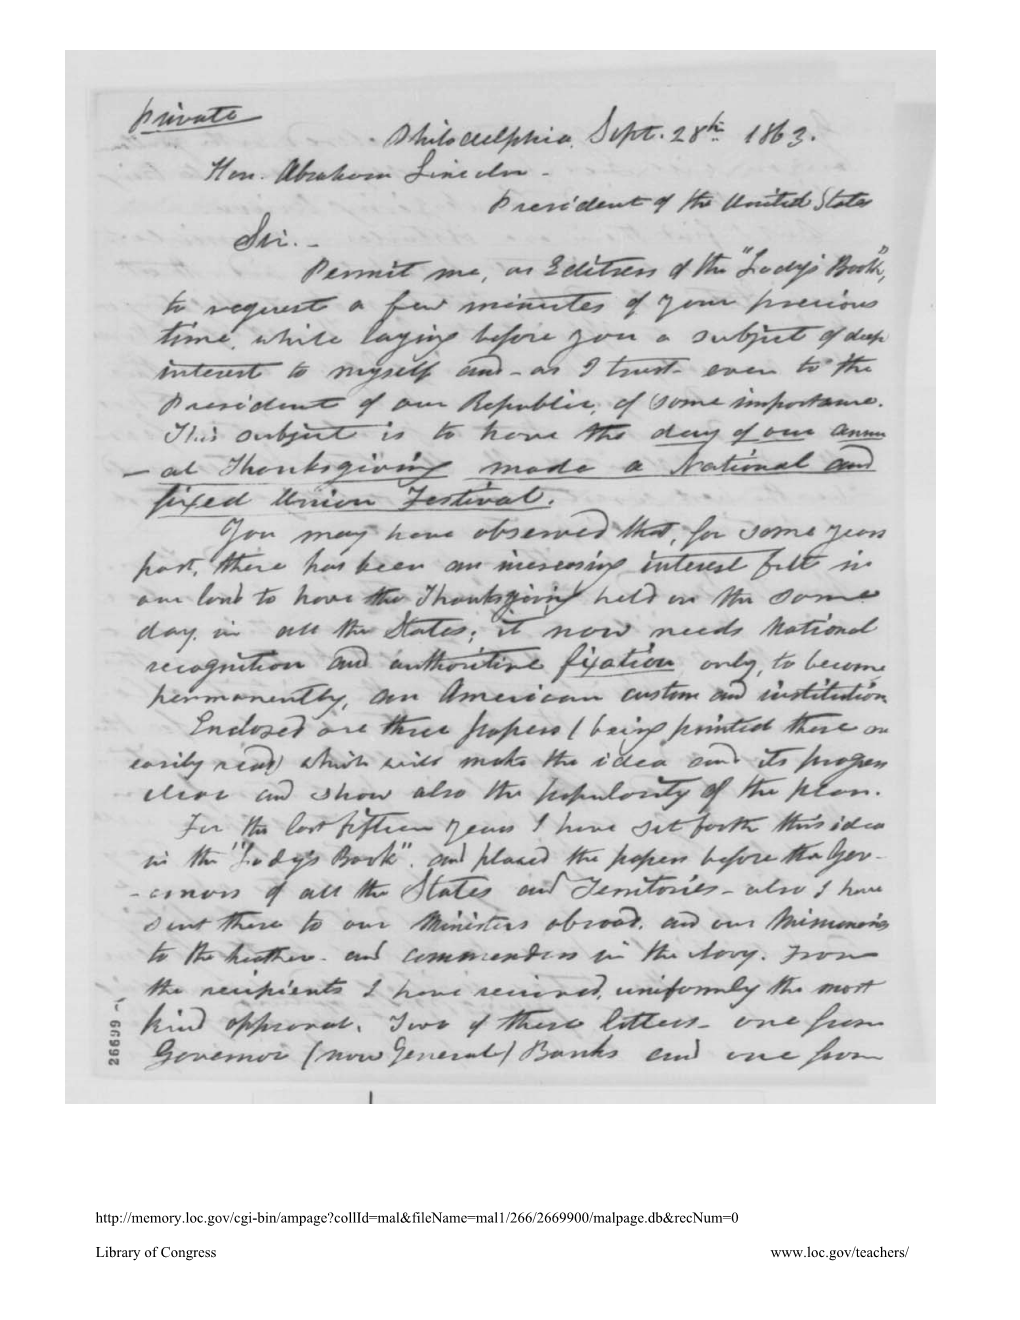 private
Philadelphia, Sept. 28th 1863.
Hon. Abraham Lincoln -
President of the United States
Sir. -
Permit me, as Editress of the "Lady's Book",
to request a few minutes of your precious
time, while laying before you a subject of deep
interest to myself and - as I trust - even to the
President of our Republic, of some importance.
This subject is to have the day of our annu
- al Thanksgiving made a National and
fixed Union Festival.
You may have observed that, for some years
past, there has been an increasing interest felt in
our land to have the Thanksgiving held on the same
day, in all the States; it now needs National
recognition and authoritive fixation, only, to become
permanently, an American custom and institution
Enclosed are three papers (being printed these are
easily read) which will make the idea and its progress
clear and show also the popularity of the plan.
For the last fifteen years I have set forth this idea
in the "Lady's Book", and placed the papers before the Gov-
- ernors of all the States and Territories - also I have
sent these to our Ministers abroad, and our Missionaries
to the heathen - and commanders in the Navy. From
the recipients I have received, uniformly the most
kind approval. Two of these letters - one from
Governor (now General) Banks and one from
26699
http://memory.loc.gov/cgi-bin/ampage?collId=mal&fileName=mal1/266/2669900/malpage.db&recNum=0
Library of Congress www.loc.gov/teachers/